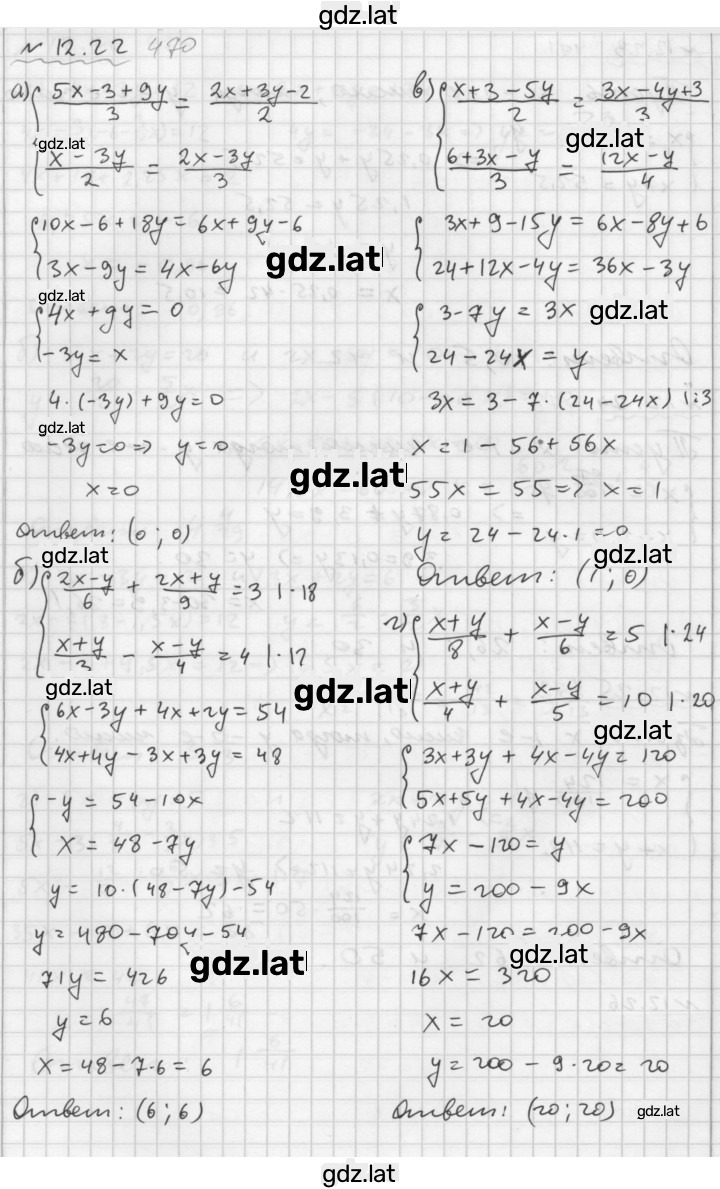 gdz.lat
№ 12.22 470
а) { (5x-3+9y)/3 = (2x+3y-2)/2
gdz.lat
{ (x-3y)/2 = (2x-3y)/3
{ 10x-6+18y = 6x+9y-6
3x-9y = 4x-6y
gdz.lat
gdz.lat
{ 4x+9y = 0
-3y = x
4·(-3y)+9y=0
gdz.lat
-3y=0 => y=0
x=0
Ответ: (0; 0)
gdz.lat
б) { (2x-y)/6 + (2x+y)/9 = 3 |·18
(x+y)/3 - (x-y)/4 = 4 |·12
gdz.lat
{ 6x-3y+4x+2y=54
4x+4y-3x+3y=48
{ -y = 54-10x
x = 48-7y
y = 10·(48-7y)-54
y=480-70y-54
gdz.lat
71y = 426
y = 6
x=48-7·6=6
Ответ: (6; 6)
в) { (x+3-5y)/2 = (3x-4y+3)/3
gdz.lat
(6+3x-y)/3 = (12x-y)/4
{ 3x+9-15y = 6x-8y+6
24+12x-4y=36x-3y
gdz.lat
{ 3-7y = 3x
24-24x = y
3x=3-7·(24-24x) |:3
x=1-56+56x
gdz.lat
55x = 55 => x=1
y= 24-24·1=0
gdz.lat
Ответ: (1; 0)
г) { (x+y)/8 + (x-y)/6 = 5 |·24
gdz.lat
(x+y)/4 + (x-y)/5 = 10 |·20
gdz.lat
{ 3x+3y+4x-4y=120
5x+5y+4x-4y=200
{ 7x-120=y
y=200-9x
7x-120=200-9x
gdz.lat
16x = 320
x = 20
y=200-9·20=20
Ответ: (20; 20)
gdz.lat
gdz.lat